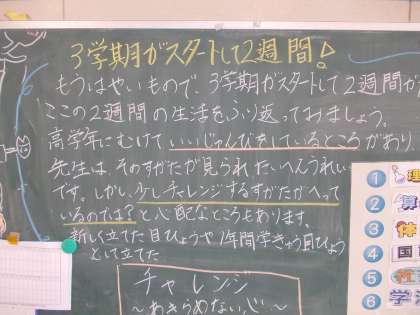 3学期がスタートして2週間!
もうはやいもので、3学期がスタートして2週間が
ここの2週間の生活をふり返っておきましょう。
高学年にむけて、いいじゅんびをしているところがあり
先生は、そのすがたが見られ たいへんうれしい
です。しかし、少しチャレンジするすがたがへって
いるのでは?と心配なところもあります。
新しく立てた目ひょうや1年間学きゅう目ひょう
として立てた
チャレンジ
~あきらめない心~
1 理
2 算
3 体
4 国
5
6 学